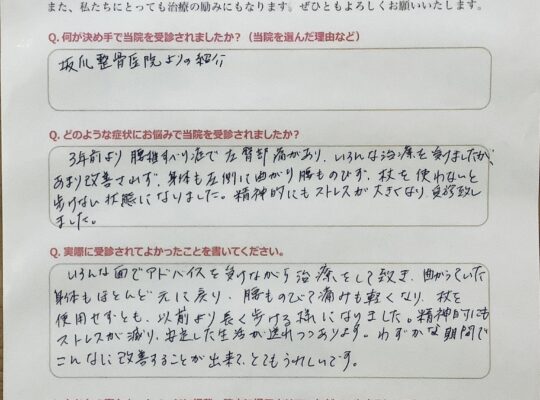 また、私たちにとっても治療の励みになります。ぜひともよろしくお願いいたします。
Q. 何が決め手で当院を受診されましたか？（当院を選んだ理由など）
坂爪整骨医院よりの紹介
Q. どのような症状にお悩みで当院を受診されましたか？
3年前より腰椎すべり症で左臀部痛があり、いろんな治療を受けましたが、
あまり改善されず、身体も左側に曲がり腰ものびず、杖を使わないと
歩けない状態になりました。精神的にもストレスが大きくなり受診致し
ました。
Q. 実際に受診されてよかったことを書いてください。
いろんな面でアドバイスを受けながら治療をして頂き、曲がっていた
身体もほとんど元に戻り、腰ものびて痛みも軽くなり、杖を
使用せずとも、以前より長く歩ける様になりました。精神的にも
ストレスが減り、安定した生活が送れつつあります。わずかな期間で
こんなに改善することが出来て、とてもうれしいです。